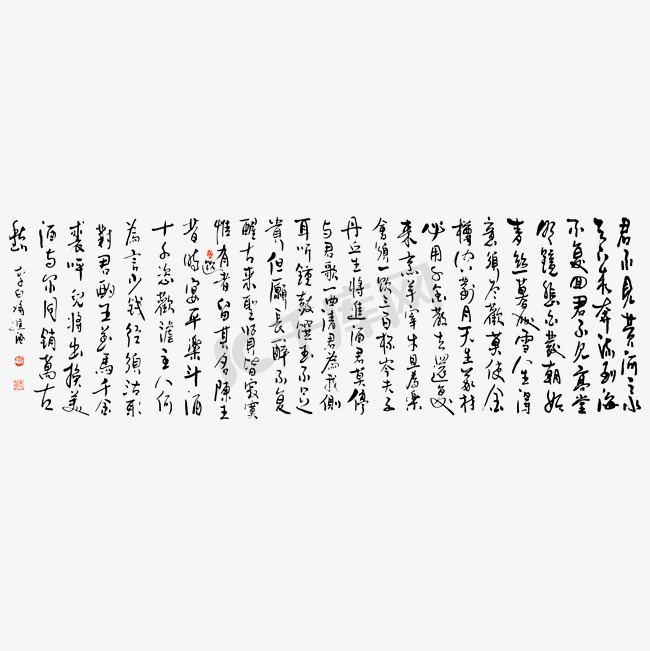 君不見黃河之水
天上來奔流到海
不复回君不見高堂
明鏡悲白髮朝如
青絲暮成雪人生得
意須尽歡莫使金
樽空對月天生我材
必用千金散去還复
來烹羊宰牛且為樂
會須一飲三百杯岑夫子
丹丘生將進酒君莫停
与君歌一曲请君為我側
耳听鐘鼓饌玉不足
貴但願長醉不复
醒古來聖賢皆寂寞
惟有者留其名陳王
飲
昔時宴平樂斗酒
十千恣歡謔主人何
為言少錢徑須沽取
對君酌五花馬千金
裘呼兒將出換美
酒与尔同銷萬古
愁
李白將進酒
千库网